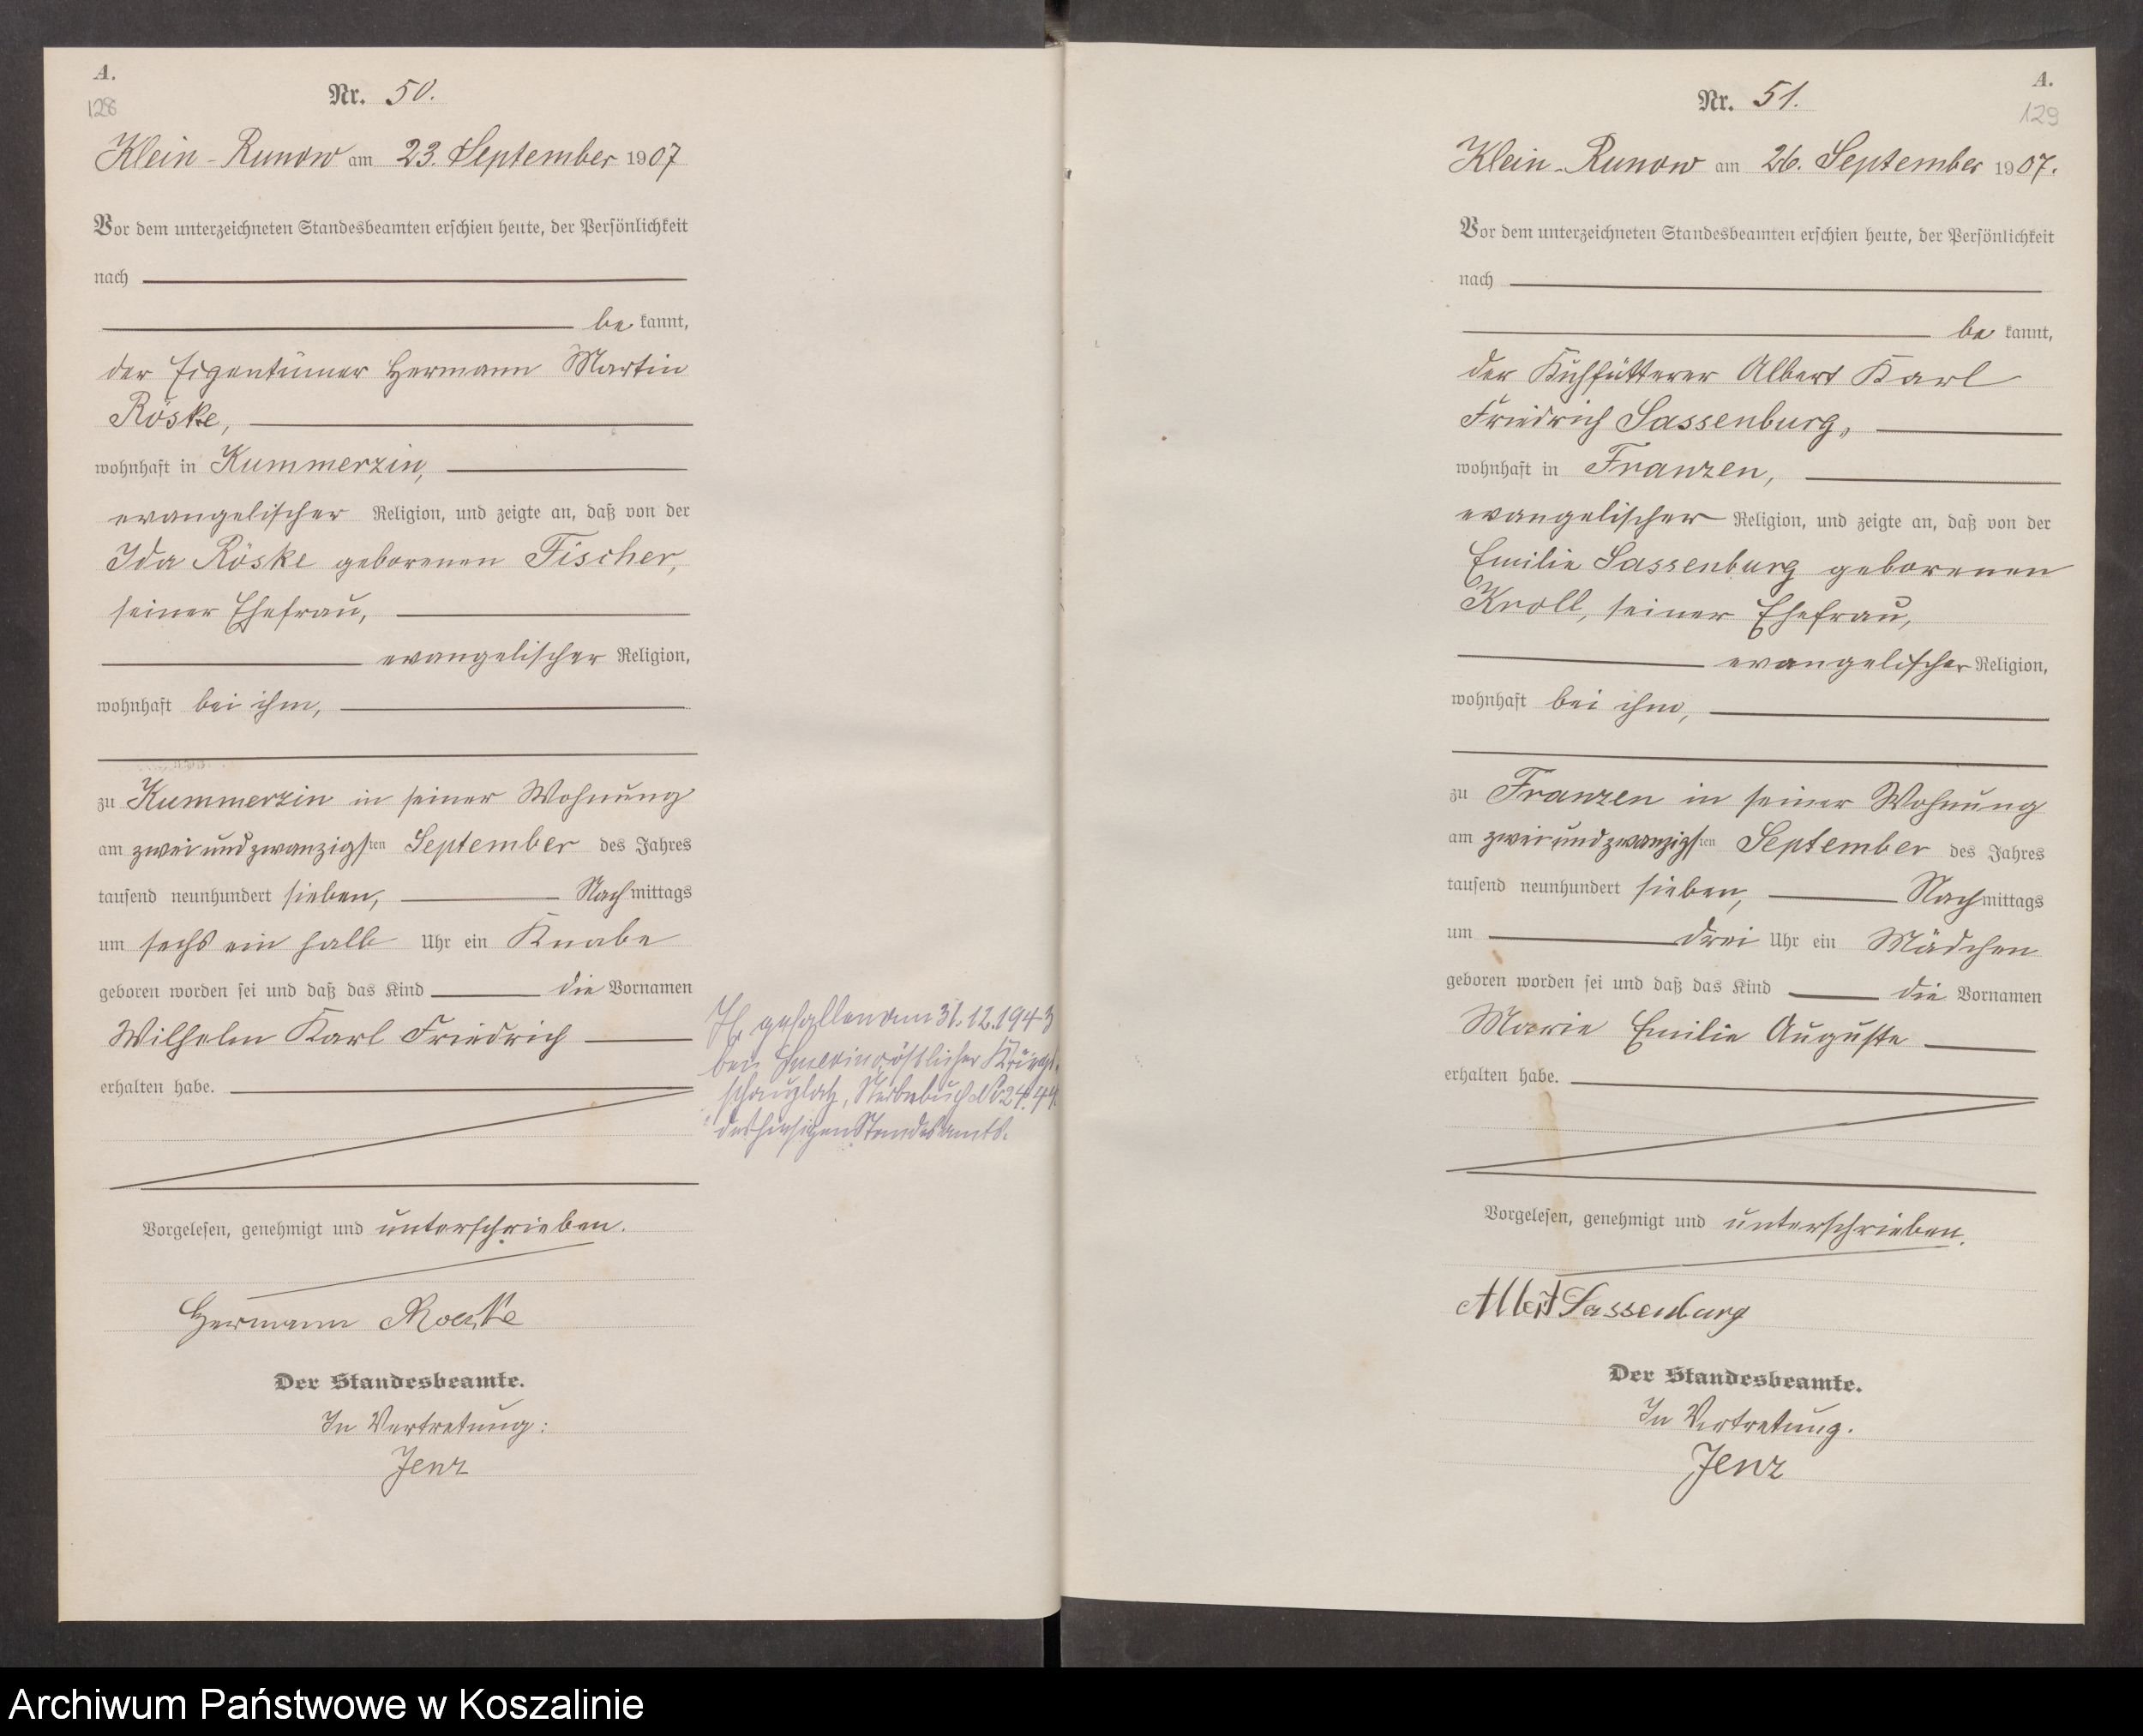 A.
128
Nr. 50.
Klein-Runow am 23. September 1907
Vor dem unterzeichneten Standesbeamten erschien heute, der Persönlichkeit
nach
be kannt,
der Eigentümer Hermann Martin
Röske,
wohnhaft in Kummerzin,
evangelischer Religion, und zeigte an, daß von der
Ida Röske geborenen Fischer,
seiner Ehefrau,
evangelischer Religion,
wohnhaft bei ihm,
zu Kummerzin in seiner Wohnung
am zweiundzwanzigsten September des Jahres
tausend neunhundert sieben, Nachmittags
um sechs ein halb Uhr ein Knabe
geboren worden sei und daß das Kind die Vornamen
Wilhelm Karl Friedrich
erhalten habe.
Vorgelesen, genehmigt und unterschrieben.
Hermann Roeske
Der Standesbeamte.
In Vertretung:
Jenz
gefallen am 31.12.1943
bei östlicher Kriegs-
schauplatz, Sterbebuch No 24/44
des hiesigen Standesamts.
A.
129
Nr. 51.
Klein-Runow am 26. September 1907.
Vor dem unterzeichneten Standesbeamten erschien heute, der Persönlichkeit
nach
be kannt,
der Kuhfütterer Albert Karl
Friedrich Sassenburg,
wohnhaft in Franzen,
evangelischer Religion, und zeigte an, daß von der
Emilie Sassenburg geborenen
Kroll, seiner Ehefrau,
evangelischer Religion,
wohnhaft bei ihm,
zu Franzen in seiner Wohnung
am zweiundzwanzigsten September des Jahres
tausend neunhundert sieben, Nachmittags
um drei Uhr ein Mädchen
geboren worden sei und daß das Kind die Vornamen
Marie Emilie Auguste
erhalten habe.
Vorgelesen, genehmigt und unterschrieben.
Albert Sassenburg
Der Standesbeamte.
In Vertretung.
Jenz
Archiwum Państwowe w Koszalinie